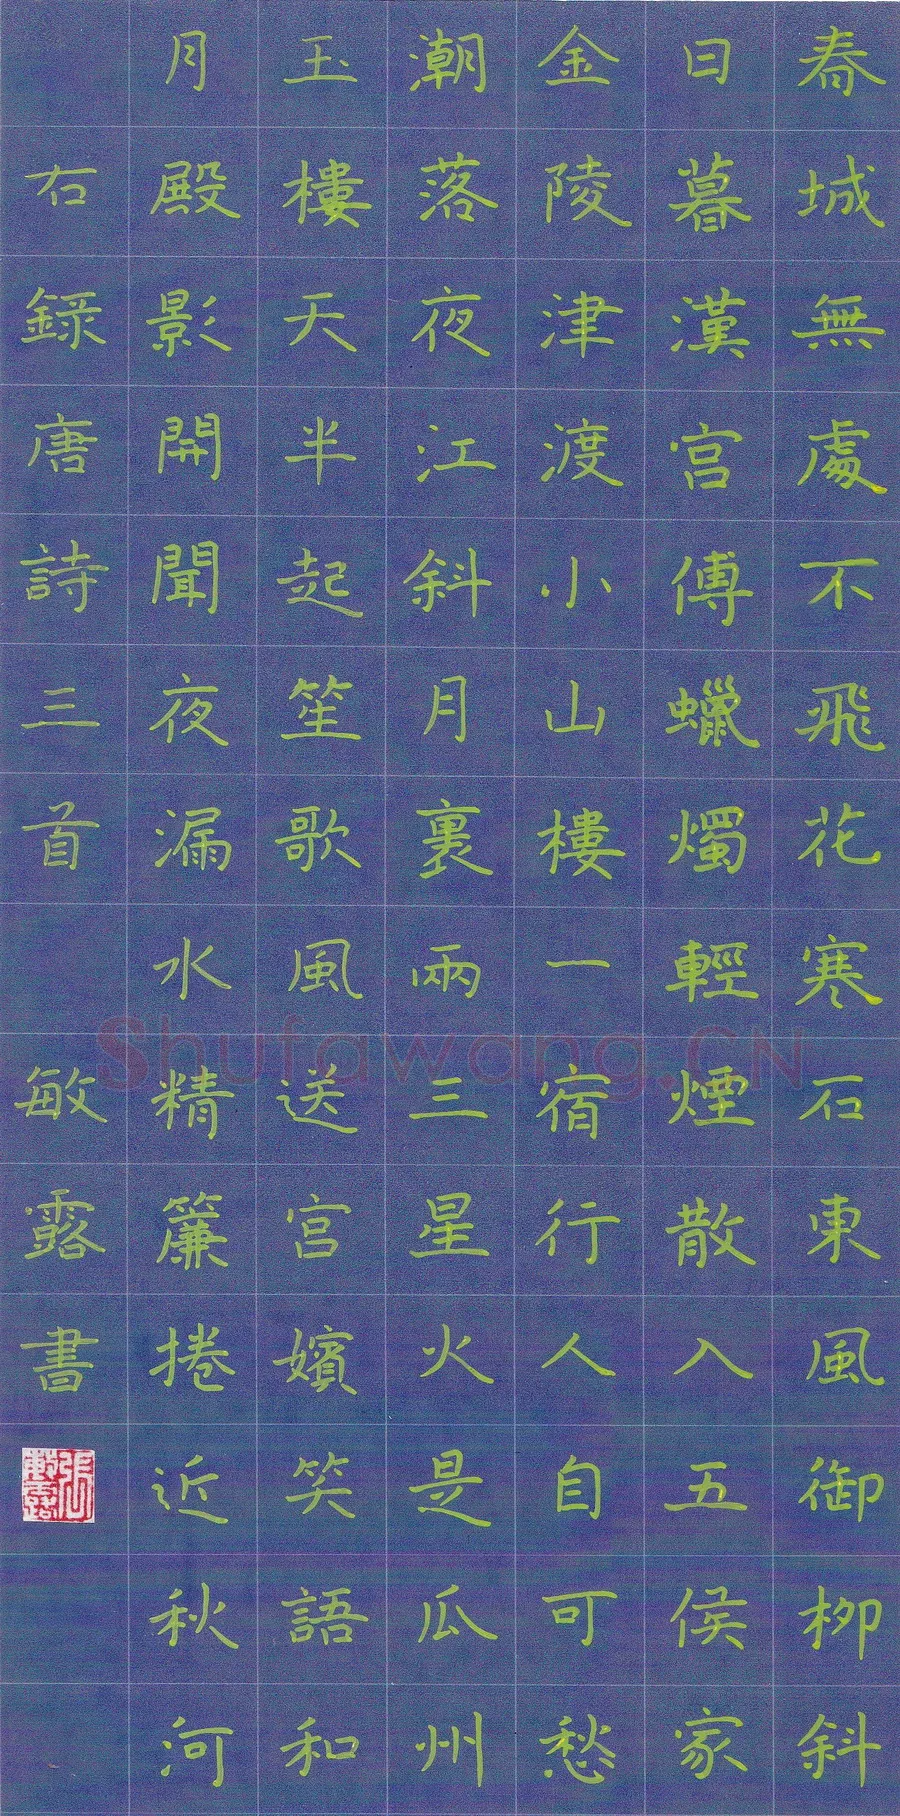 春城無處不飛花寒石東風御柳斜
日暮漢宮傅蠟燭輕煙散入五侯家
金陵津渡小山樓一宿行人自可愁
潮落夜江斜月裏兩三星火是瓜州
玉樓天半起笙歌風送宮嬪笑語和
月殿影開聞夜漏水精簾捲近秋河
右錄唐詩三首 敏露書
張敏露
Shufawang.CN